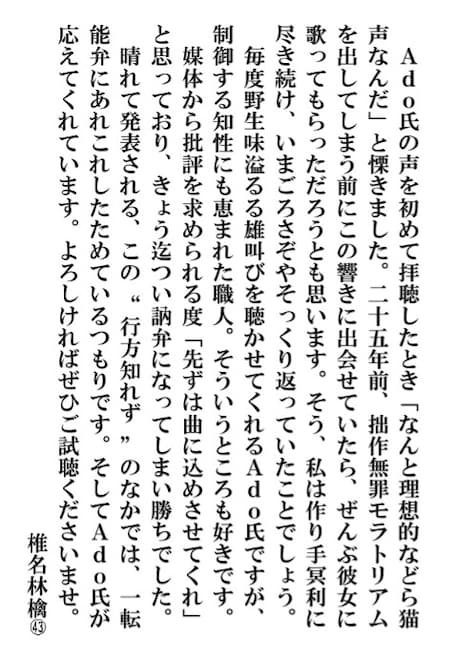 Ado氏の声を初めて拝聴したとき「なんと理想的などら猫
声なんだ」と慄きました。二十五年前、拙作無罪モラトリアム
を出してしまう前にこの響きに出会せていたら、ぜんぶ彼女に
歌ってもらっただろうとも思います。そう、私は作り手冥利に
尽き続け、いまごろさぞやそっくり返っていたことでしょう。
　毎度野生味溢るる雄叫びを聴かせてくれるAdo氏ですが、
制御する知性にも恵まれた職人。そういうところも好きです。
　媒体から批評を求められる度「先ずは曲に込めさせてくれ」
と思っており、きょう迄つい訥弁になってしまい勝ちでした。
　晴れて発表される、この“行方知れず”のなかでは、一転
能弁にあれこれしたためているつもりです。そしてAdo氏が
応えてくれています。よろしければぜひご試聴くださいませ。
椎名林檎㊸